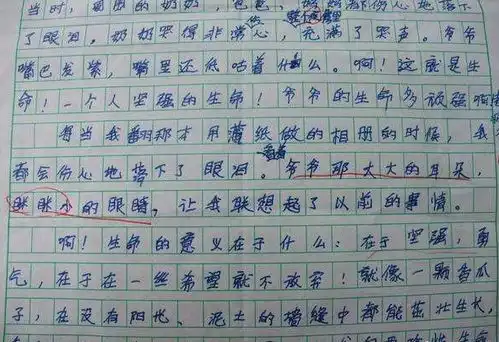 当时，周围的奶奶，爸爸，妈妈都伤心地落下
了眼泪。奶奶哭得非常伤心，整个房间里充满了哭声。爷爷
嘴巴发紫，嘴里还低咕着什么。啊！这就是生
命！一个人坚强的生命！爷爷的生命多顽强啊
每当我翻那本用薄纸做的相册的时候，我
都会伤心地落下了眼泪。看着爷爷那大大的耳朵，
眯眯小的眼睛，让我联想起了以前的事情。
啊！生命的意义在于什么：在于坚强，勇
气，在于在一丝希望就不放弃！就像一颗香瓜
子，在没有阳光、泥土的墙缝中都能茁壮生长，